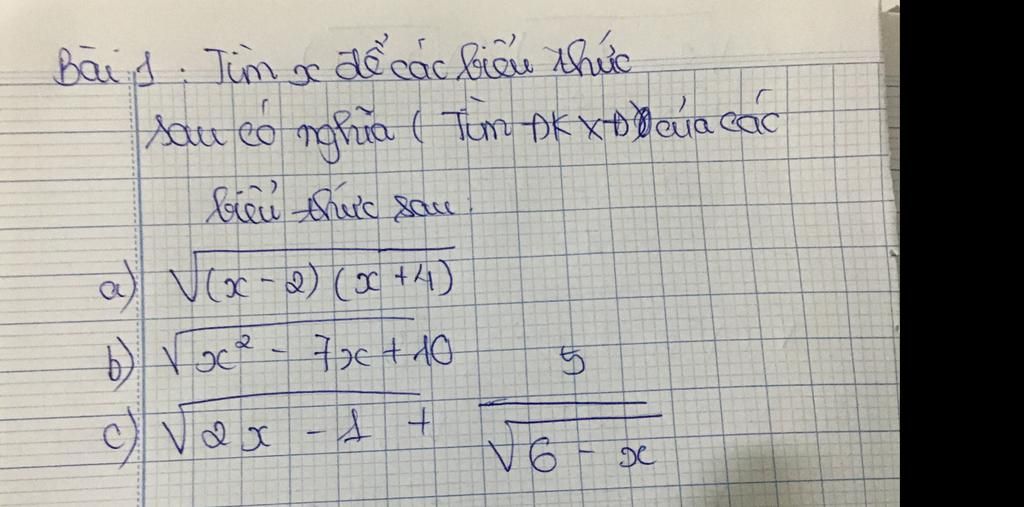 Bài 1 : Tìm x để các biểu thức
sau có nghĩa ( Tìm ĐKXĐ) của các
biểu thức sau :
a) √(x - 2) (x + 4)
b) √x² - 7x + 10
c) √2x - 1 + 5/√6 - x